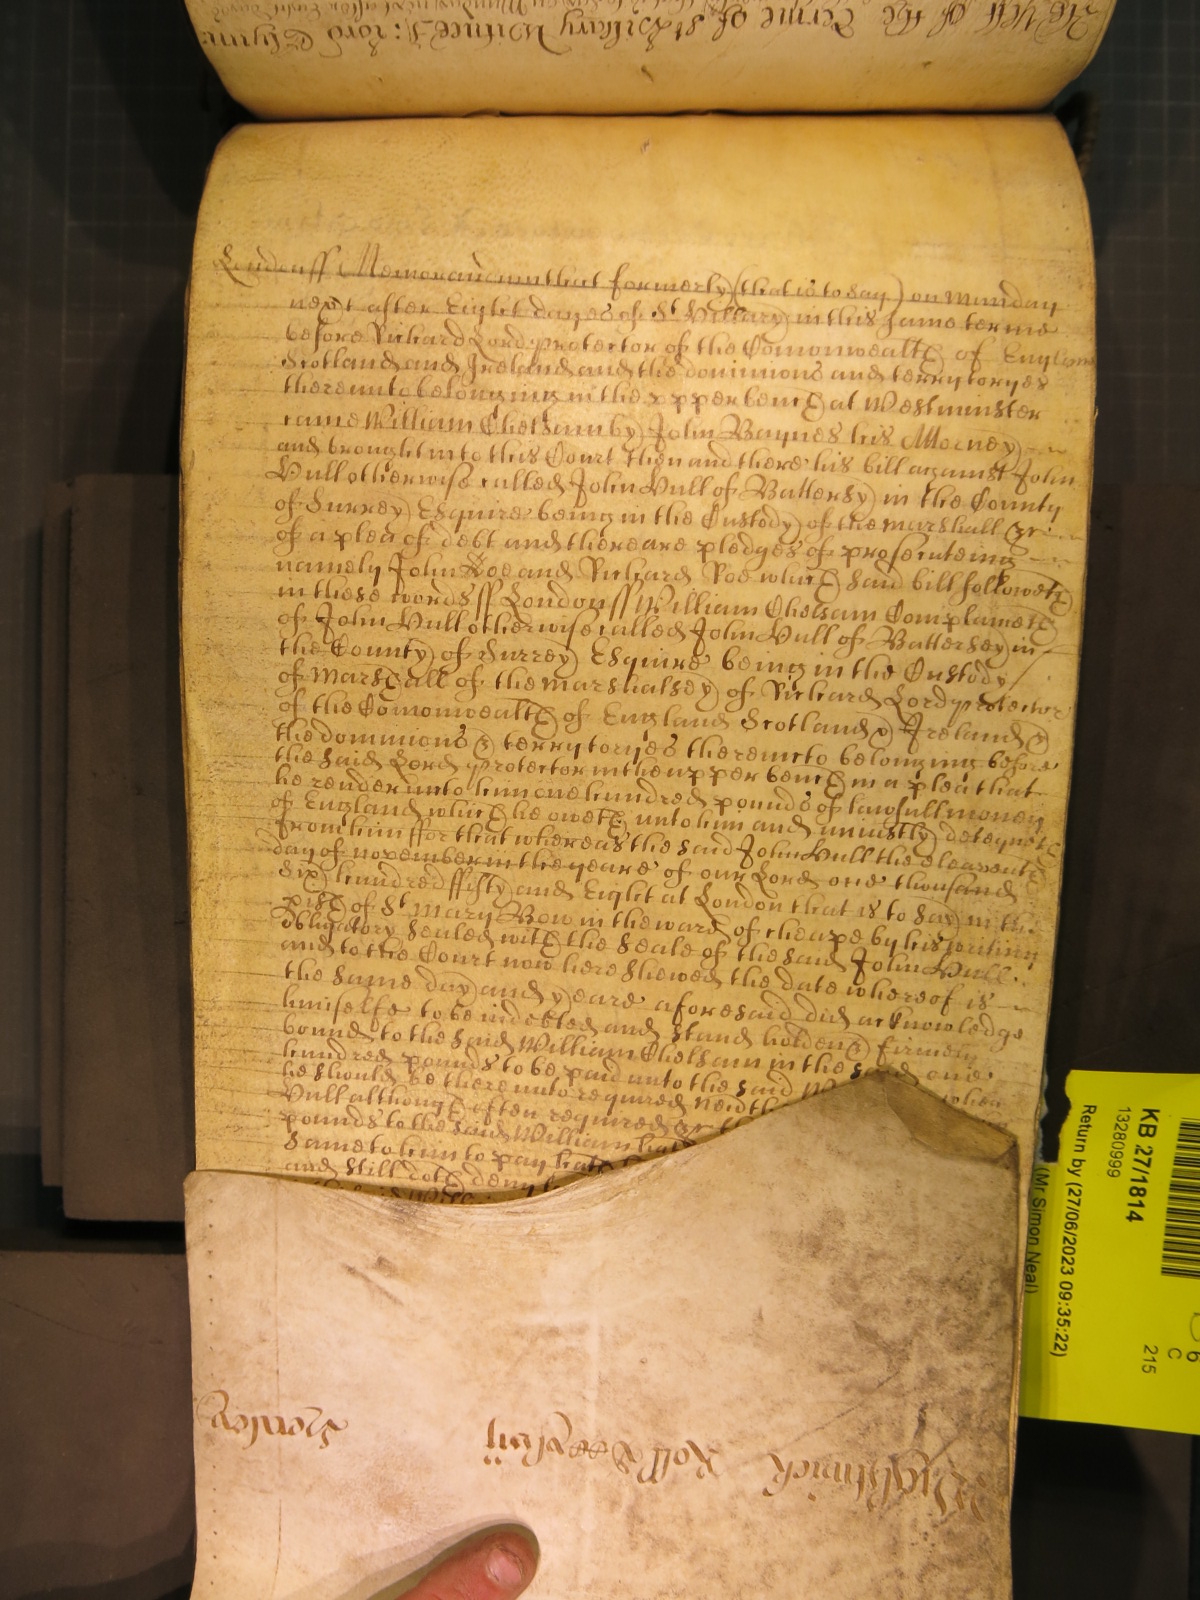 London ss Memorandum that formerly (that is to say) on Munday
next after Eight dayes of St Hillary in this same terme
before Richard Lord protector of the Comonwealth of England
Scotland and Ireland and the dominions and terrytoryes
thereunto belonging in the upper bench at Westminster
came William Chelsam by John Baynes his Attorney
and brought into this Court then and there his bill against John
Hull otherwise called John Hull of Battersy in the County
of Surrey Esquire being in the Custody of the marshall &c
of a plea of debt and there are pledges of prosecuteing
namely John Doe and Richard Roe which said bill followeth
in these words ss London ss William Chelsam Complaineth
of John Hull otherwise called John Hull of Battersey in
the County of Surrey Esquire being in the Custody
of Marshall of the marshalsey of Richard Lord protector
of the Comonwealth of England Scotland & Ireland &
the dominions & terrytoryes thereunto belonging before
the said Lord protector in the upper bench in a plea that
he render unto him one hundred pounds of lawfull money
of England which he oweth unto him and uniustly deteyneth
from him ffor that whereas the said John Hull the eleaventh
day of november in the yeare of our Lord one thousand
Six hundred ffifty and Eight at London that is to say in the
pish of St Mary Bow in the ward of cheape by his writing
obligatory sealed with the seale of the said John Hull
and to the Court now here shewed the date whereof is
the same day and yeare aforesaid did acknowledge
himselfe to be indebted and stand holden & firmely
bound to the said William Chelsam in the said one
hundred pounds to be paid unto the said when
he should be thereunto required
Hull although often required &c
pounds to the said William hath
same to him to pay hath
and still doth deny
KB 27/1814
13280999
Return by (27/06/2023 09:35:22)
(Mr Simon Neal)
6
C
215